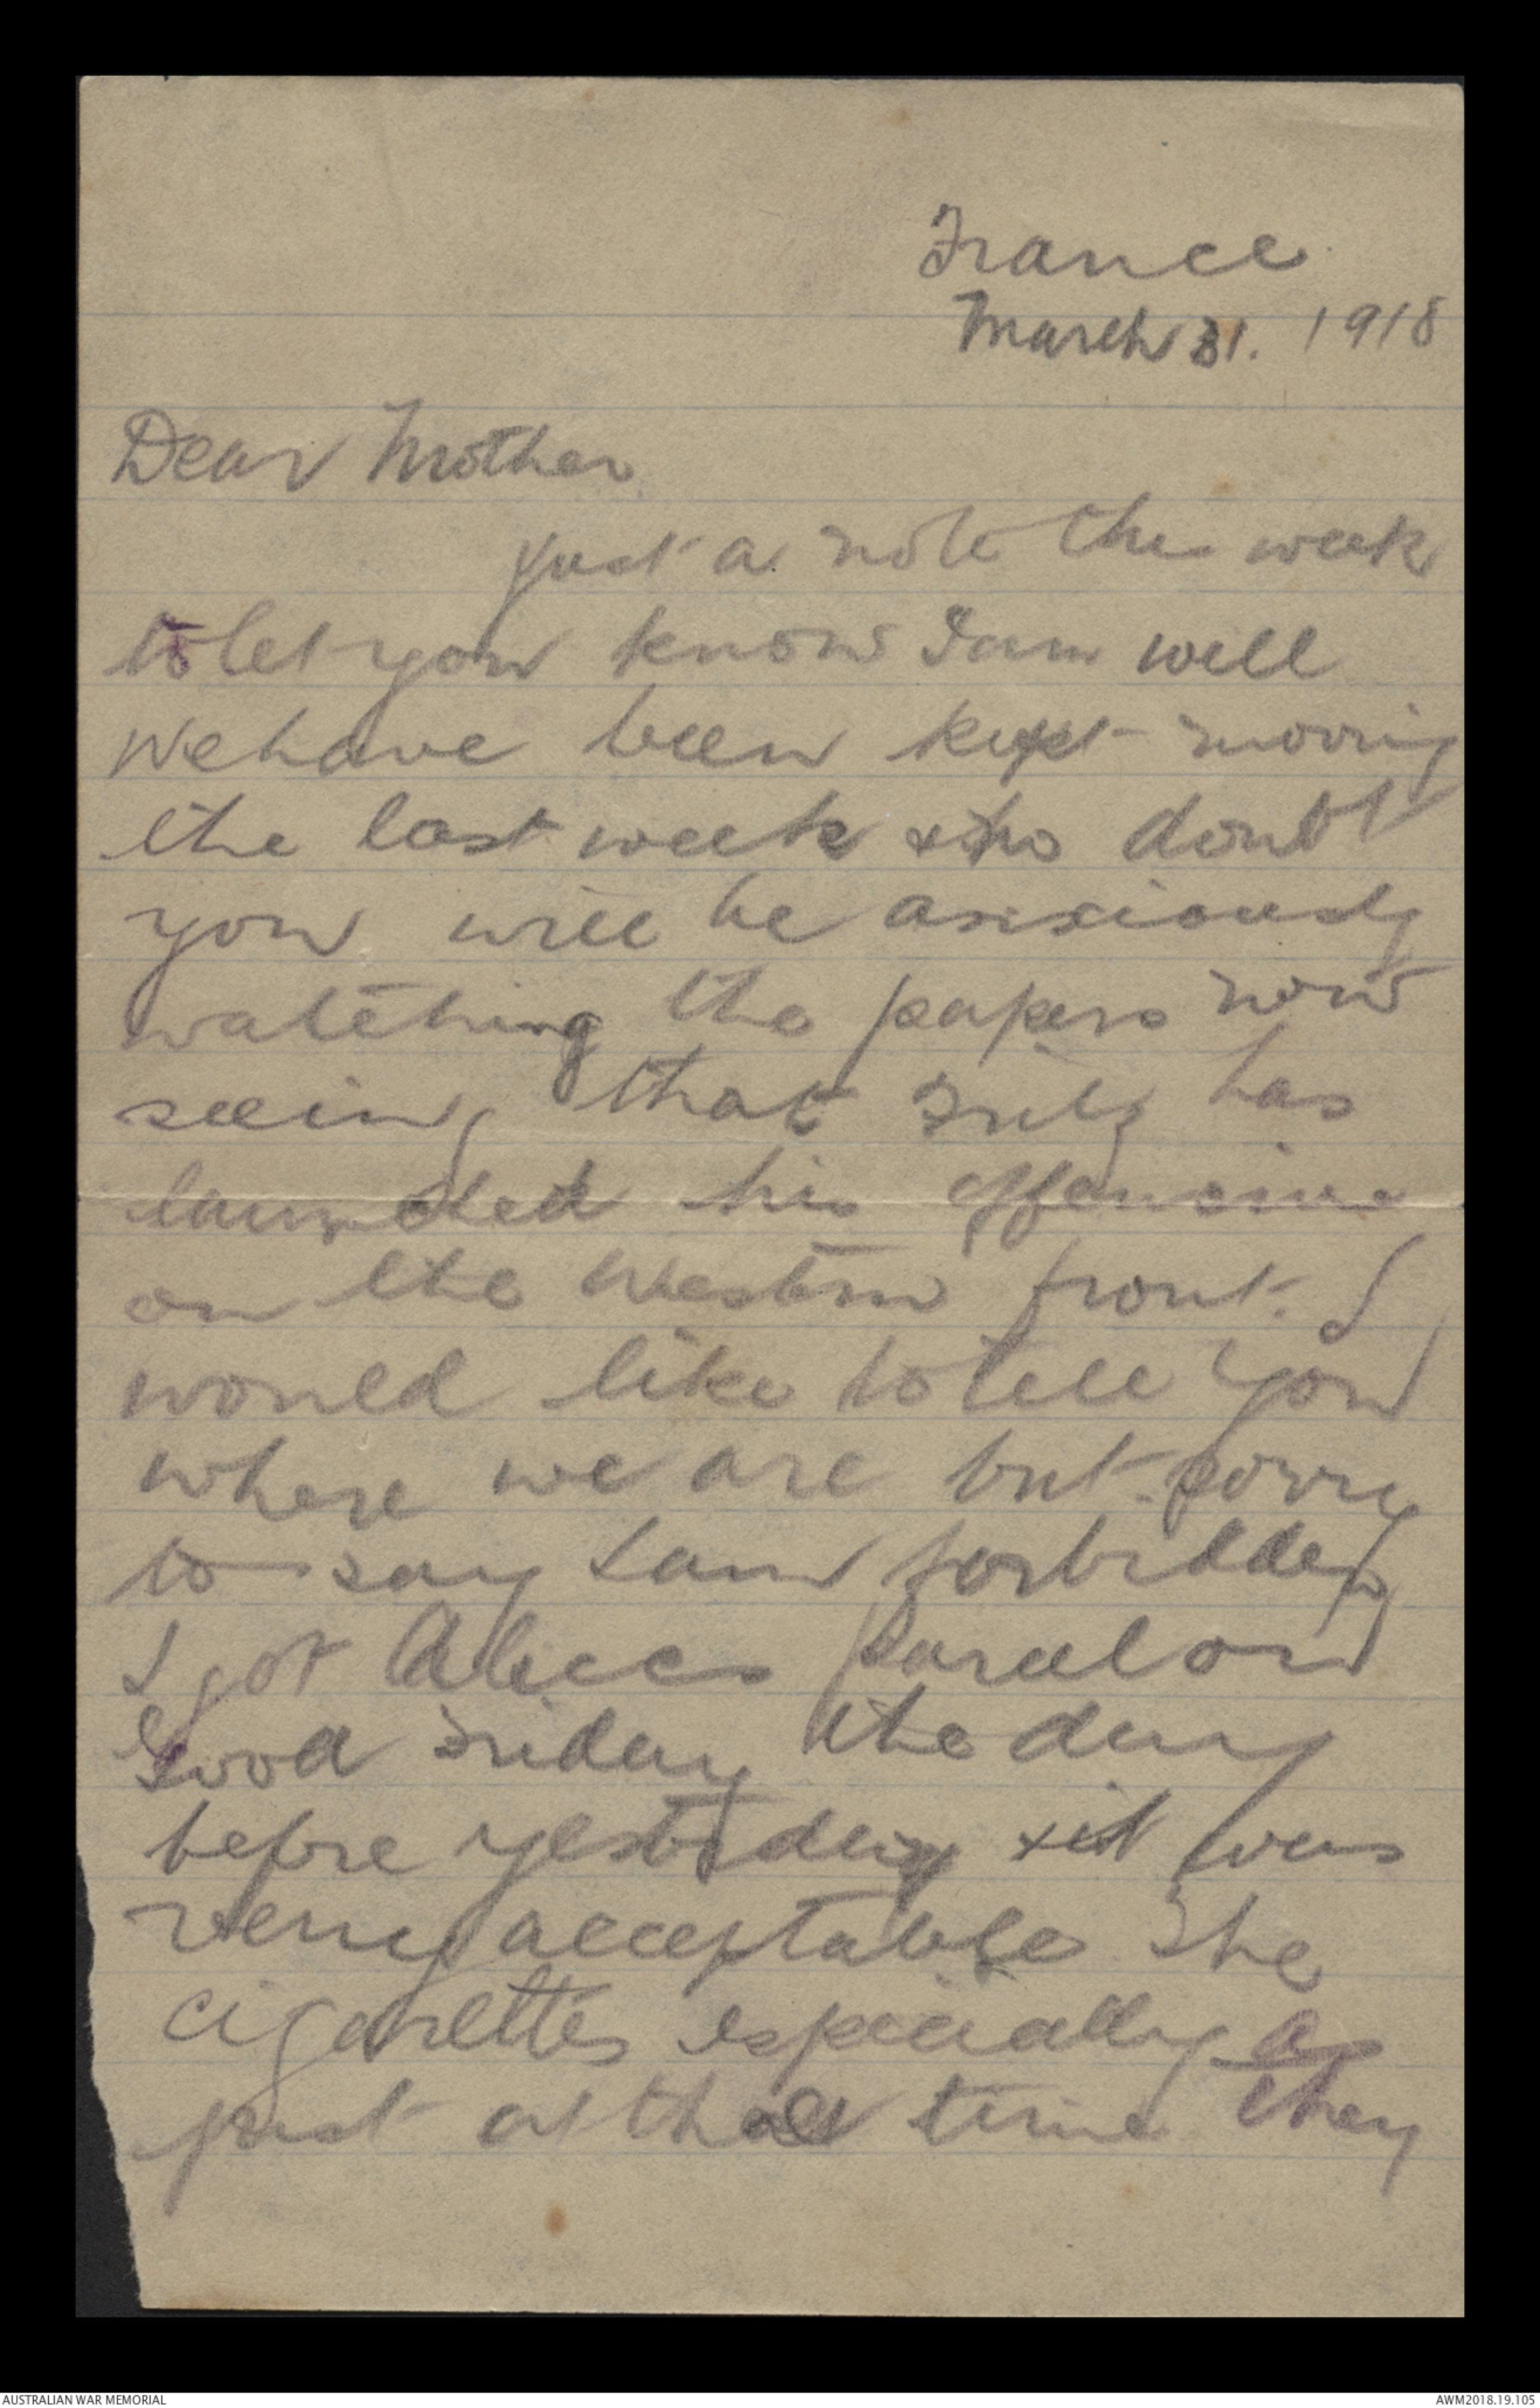 France
March 31. 1918
Dear Mother
Just a note this week
to let you know I am well
We have been kept moving
the last week & no doubt
you will be anxiously
watching the papers now
seeing that Fritz has
launched his offensive
on the Western front. I
would like to tell you
where we are but sorry
to say I am forbidden
I got Alices parcel on
Good Friday the day
before yesterday & it was
very acceptable The
cigarettes especially as
just at that time they
AUSTRALIAN WAR MEMORIAL
AWM2018.19.105